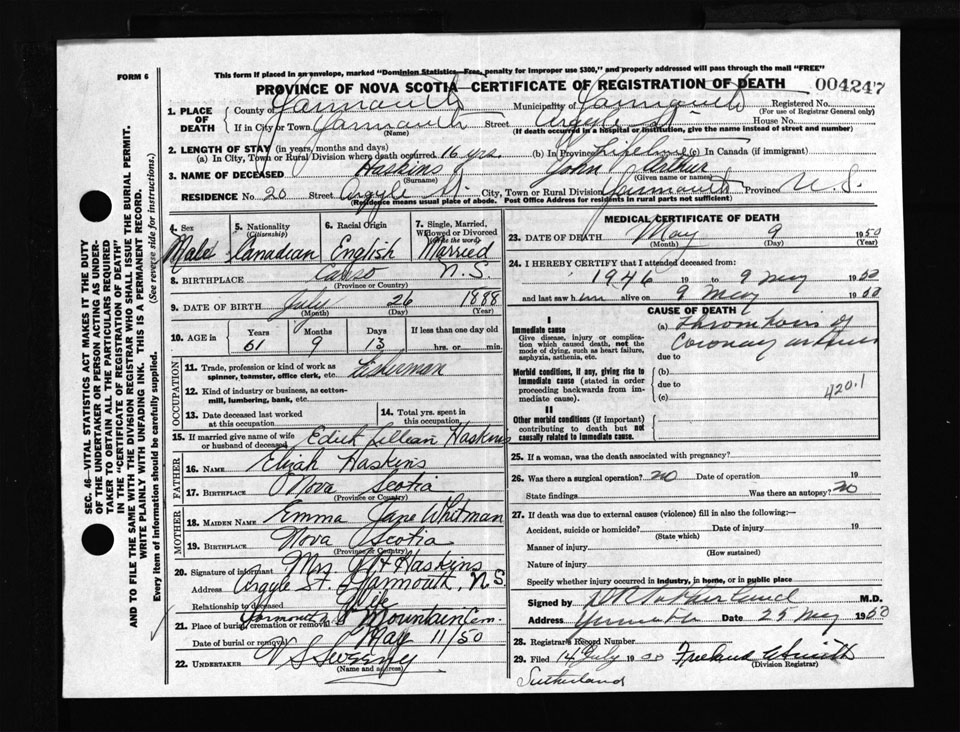 FORM 6
This form if placed in an envelope, marked "Dominion Statistics—Free, penalty for improper use $300," and properly addressed will pass through the mail "FREE"
PROVINCE OF NOVA SCOTIA—CERTIFICATE OF REGISTRATION OF DEATH
004247
1. PLACE OF DEATH
County of Yarmouth Municipality of Yarmouth Registered No.
(For use of Registrar General only)
If in City or Town Yarmouth Street Argyle St House No.
(Name) (If death occurred in a hospital or institution, give the name instead of street and number)
2. LENGTH OF STAY (in years, months and days)
(a) In City, Town or Rural Division where death occurred 16 yrs. (b) In Province Lifetime (c) In Canada (if immigrant)
3. NAME OF DECEASED Haskins John Arthur
(Surname) (Given name or names)
RESIDENCE No. 20 Street Argyle St. City, Town or Rural Division Yarmouth Province N.S.
(Residence means usual place of abode. Post Office Address for residents in rural parts not sufficient)
4. Sex 5. Nationality (Citizenship) 6. Racial Origin 7. Single, Married, Widowed or Divorced (Write the word)
Male Canadian English Married
8. BIRTHPLACE Canso N.S.
(Province or Country)
9. DATE OF BIRTH July 26 1888
(Month) (Day) (Year)
10. AGE Years Months Days If less than one day old
61 9 13 hrs. or min.
OCCUPATION
11. Trade, profession or kind of work as spinner, bamster, office clerk, etc. Fisherman
12. Kind of industry or business, as cotton-mill, lumbering, bank, etc.
13. Date deceased last worked at this occupation
14. Total yrs. spent in this occupation
15. If married give name of wife or husband of deceased Edith Lillian Haskins
FATHER
16. NAME Elijah Haskins
17. BIRTHPLACE Nova Scotia
(Province or Country)
MOTHER
18. MAIDEN NAME Emma Jane Whitman
19. BIRTHPLACE Nova Scotia
(Province or Country)
20. Signature of informant Mrs. Haskins
Address Argyle St. Yarmouth, N.S.
Relationship to deceased Wife
21. Place of burial, cremation or removal Yarmouth Mountain Cem.
Date of burial or removal May 11/50
22. UNDERTAKER V S Sweeny
(Name and address)
MEDICAL CERTIFICATE OF DEATH
23. DATE OF DEATH May 9 1950
(Month) (Day) (Year)
24. I HEREBY CERTIFY that I attended deceased from:
1946 to 9 May 1950
and last saw him alive on 9 May 1950
CAUSE OF DEATH
I
Immediate cause
Give disease, injury or complication which caused death, not the mode of dying, such as heart failure, asphyxia, asthenia, etc.
(a) Thrombosis of coronary arteries
due to
Morbid conditions, if any, giving rise to immediate cause (stated in order proceeding backwards from immediate cause).
(b)
due to
(c)
420.1
II
Other morbid conditions (if important) contributing to death but not causally related to immediate cause.
25. If a woman, was the death associated with pregnancy?
26. Was there a surgical operation? no Date of operation 19
State findings Was there an autopsy? no
27. If death was due to external causes (violence) fill in also the following:—
Accident, suicide or homicide? Date of injury 19
(State which)
Manner of injury
(How sustained)
Nature of injury
Specify whether injury occurred in industry, in home, or in public place
Signed by Sutherland M.D.
Address Yarmouth Date 25 May 1950
28. Registrar's Record Number
29. Filed 14 July 1950 Smith
(Division Registrar)
Sutherland
SEC. 46—VITAL STATISTICS ACT MAKES IT THE DUTY
OF THE UNDERTAKER OR PERSON ACTING AS UNDER-
TAKER TO OBTAIN ALL THE PARTICULARS REQUIRED
IN THE "CERTIFICATE OF REGISTRATION OF DEATH"
AND TO FILE THE SAME WITH THE DIVISION REGISTRAR WHO SHALL ISSUE THE BURIAL PERMIT.
WRITE PLAINLY WITH UNFADING INK. THIS IS A PERMANENT RECORD.
Every item of information should be carefully supplied. (See reverse side for instructions.)